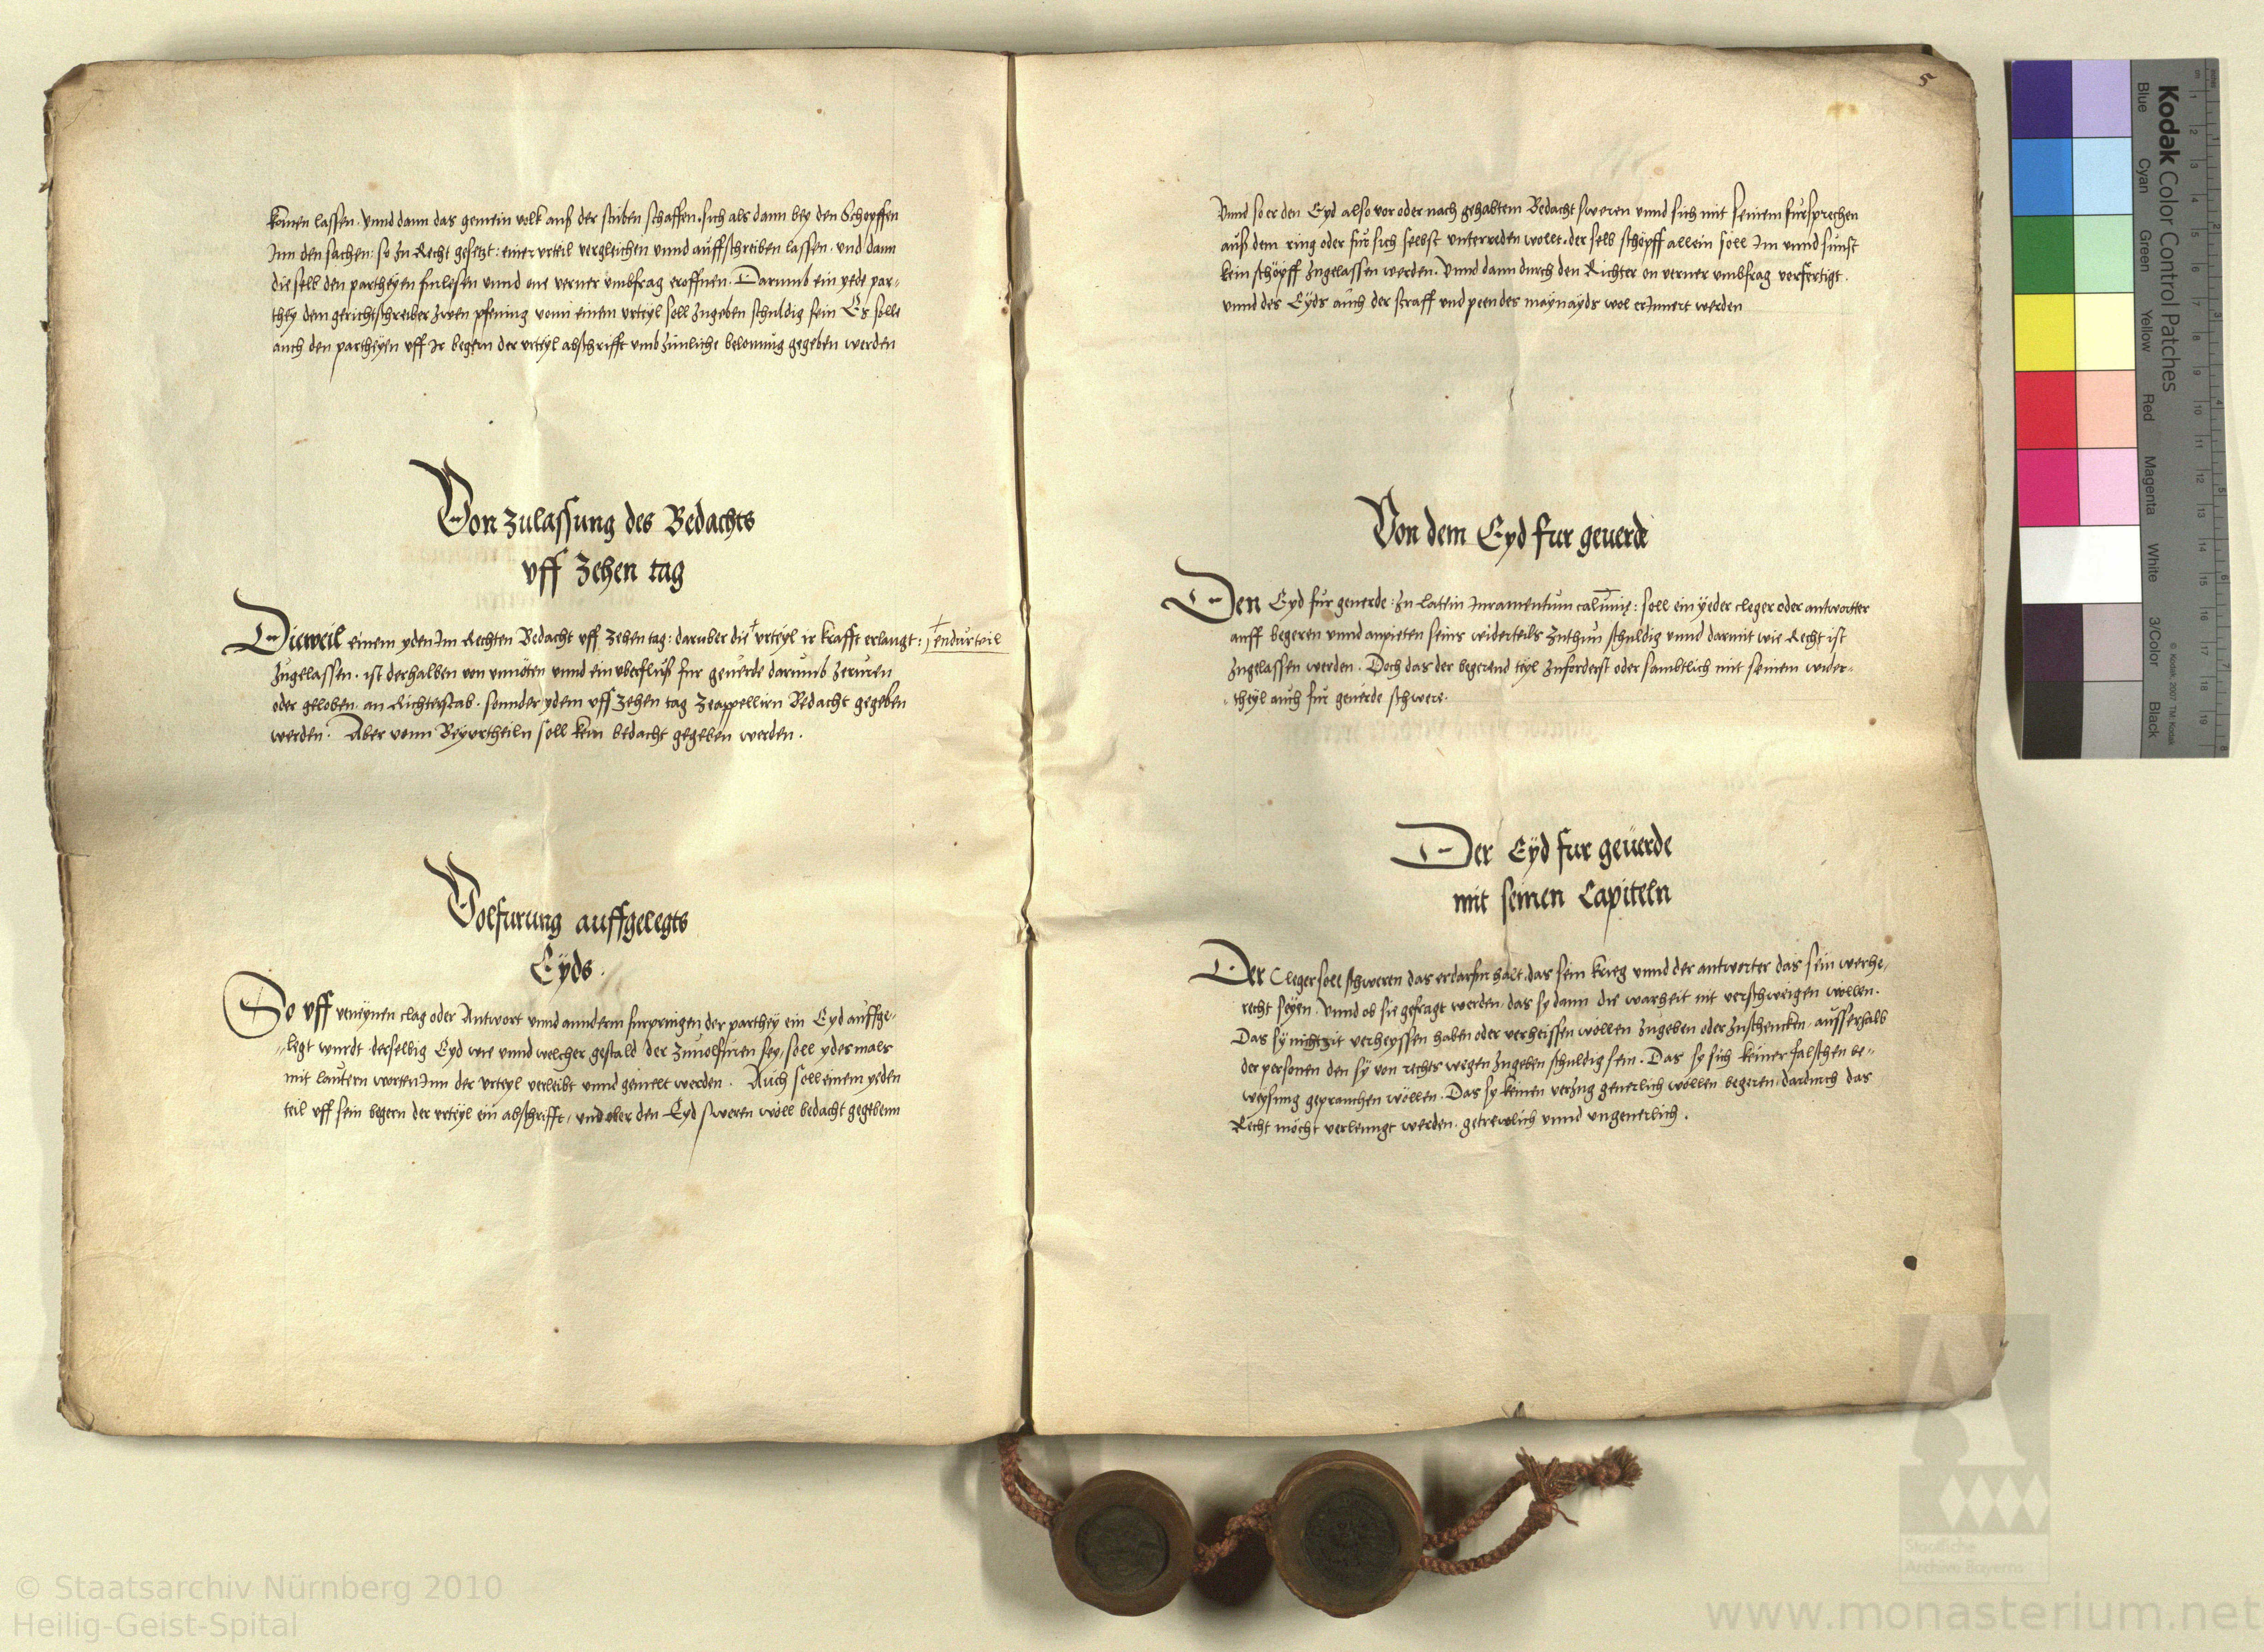 komen lassen. Vnnd dann das gemein volk auß der stuben schaffen. sich als dann bey den Schopffen
Inn den sachen: so zu Recht gesetzt: einer vrteil vergleichen vnnd auffschreiben lassen. vnd dann
die selb den partheyen furlesen vnnd one verner vmbfrag eroffnen. Darumb ein yede par-
they dem gerichtschreiber zwen pfening vonn einem vrteyl soll zugeben schuldig sein Es solle
auch den partheyen vff Ir begern der vrteyl abschrifft vmb zimliche belonung gegeben werden
Von zulassung des Bedachts
vff Zehen tag
Dieweil einem yden Im Rechten Bedacht vff zehen tag: daruber die + vrteyl ir krafft erlangt: + endurteil
zugelassen. ist derhalben von vnnöten vnnd ein vberfluß fur geuerde darumb zeruren
oder geloben. an Richterstab. sonnder ydem vff zehen tag zeappelliern Bedacht gegeben
werden. Aber vonn Beyvrtheiln soll kein bedacht gegeben werden.
Volfurung auffgelegts
Eyds.
So vff verneynen clag oder Antwort vnnd annderm furpringen der parthey ein Eyd auffge-
legt wurdt. derselbig Eyd wie vnnd welcher gestald der zuuolfuren sey, soll ydesmals
mit lautern worten Inn der vrteyl verleibt vnnd gemelt werden. Auch soll einem yeden
teil vff sein begern der vrteyl ein abschrifft, vnd ober den Eyd sweren wöll bedacht gegebenn
5
Vnnd so er den Eyd also vor oder nach gehabtem Bedacht sweren vnnd sich mit seinem fursprechen
auß dem ring oder fur sich selbst vnterreden wollt. der selb schöpff allein soll Im vnnd sunst
kein schöpff zugelassen werden. Vnnd dann durch den Richter on verner vmbfrag verfertigt.
vnnd des Eyds auch der straff vnd peen des maynayds wol erInnert werden
Von dem Eyd fur geuerde
Den Eyd fur geuerde: zu latein Iuramentum calumnie: soll ein yeder cleger oder antworter
auff begeren vnnd anpieten seins widerteils zuthun schuldig vnnd darmit wie Recht ist
zugelassen werden. Doch das der begerend teyl zuforderst oder sambtlich mit seinem wider-
theyl auch fur geuerde schwere.
Der Eyd fur geuerde
mit seinen Capiteln
Der Cleger soll schweren das er darfur halt. das sein krieg vnnd der antworter das sein werhe,
recht seyen. Vnnd ob sie gefragt werden, das sy dann die warheit nit verschweigen wöllen.
Das sy nichtzit verheyssen haben oder verheissen wöllen zugeben oder zuschencken, ausserhalb
der personen den sy von rechts wegen zugeben schuldig sein. Das sy sich keiner falschen be-
weysung geprauchen wöllen. Das sy keinen verzug geuerlich wöllen begeren, dardurch das
Recht möcht verlenngt werden. getrewlich vnnd vngeuerlich.
Kodak Color Control Patches
Blue Cyan Green Yellow Red Magenta White 3/Color Black
© Kodak, 2007 TM: Kodak
© Staatsarchiv Nürnberg 2010
Heilig-Geist-Spital
Staatliche
Archive Bayerns
www.monasterium.net